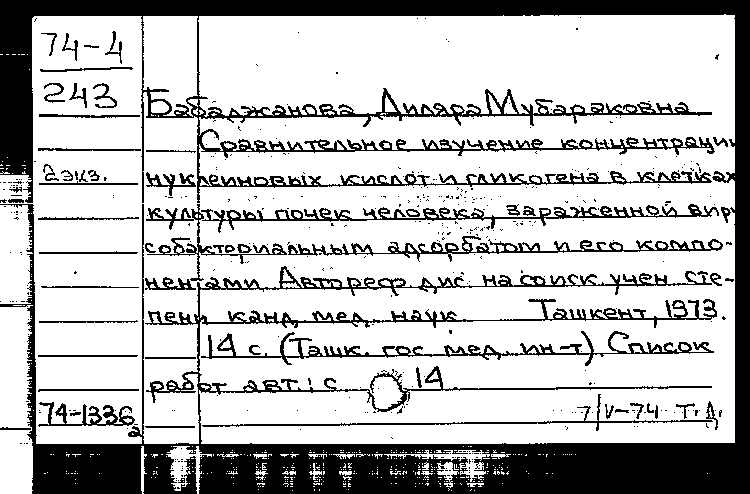 74-4
243
Бабаджанова, Диляра Мубараковна
Сравнительное изучение концентрации
2 экз.
нуклеиновых кислот и гликогена в клетках
культуры почек человека, зараженной вир
собактериальным адсорбатом и его компо-
нентами Автореф дис. на соиск учен сте-
пени канд мед наук. Ташкент, 1973.
14 с. (Ташк. гос мед ин-т) Список
работ авт.: с 14
74-1336
7/V-74 Т.Д.